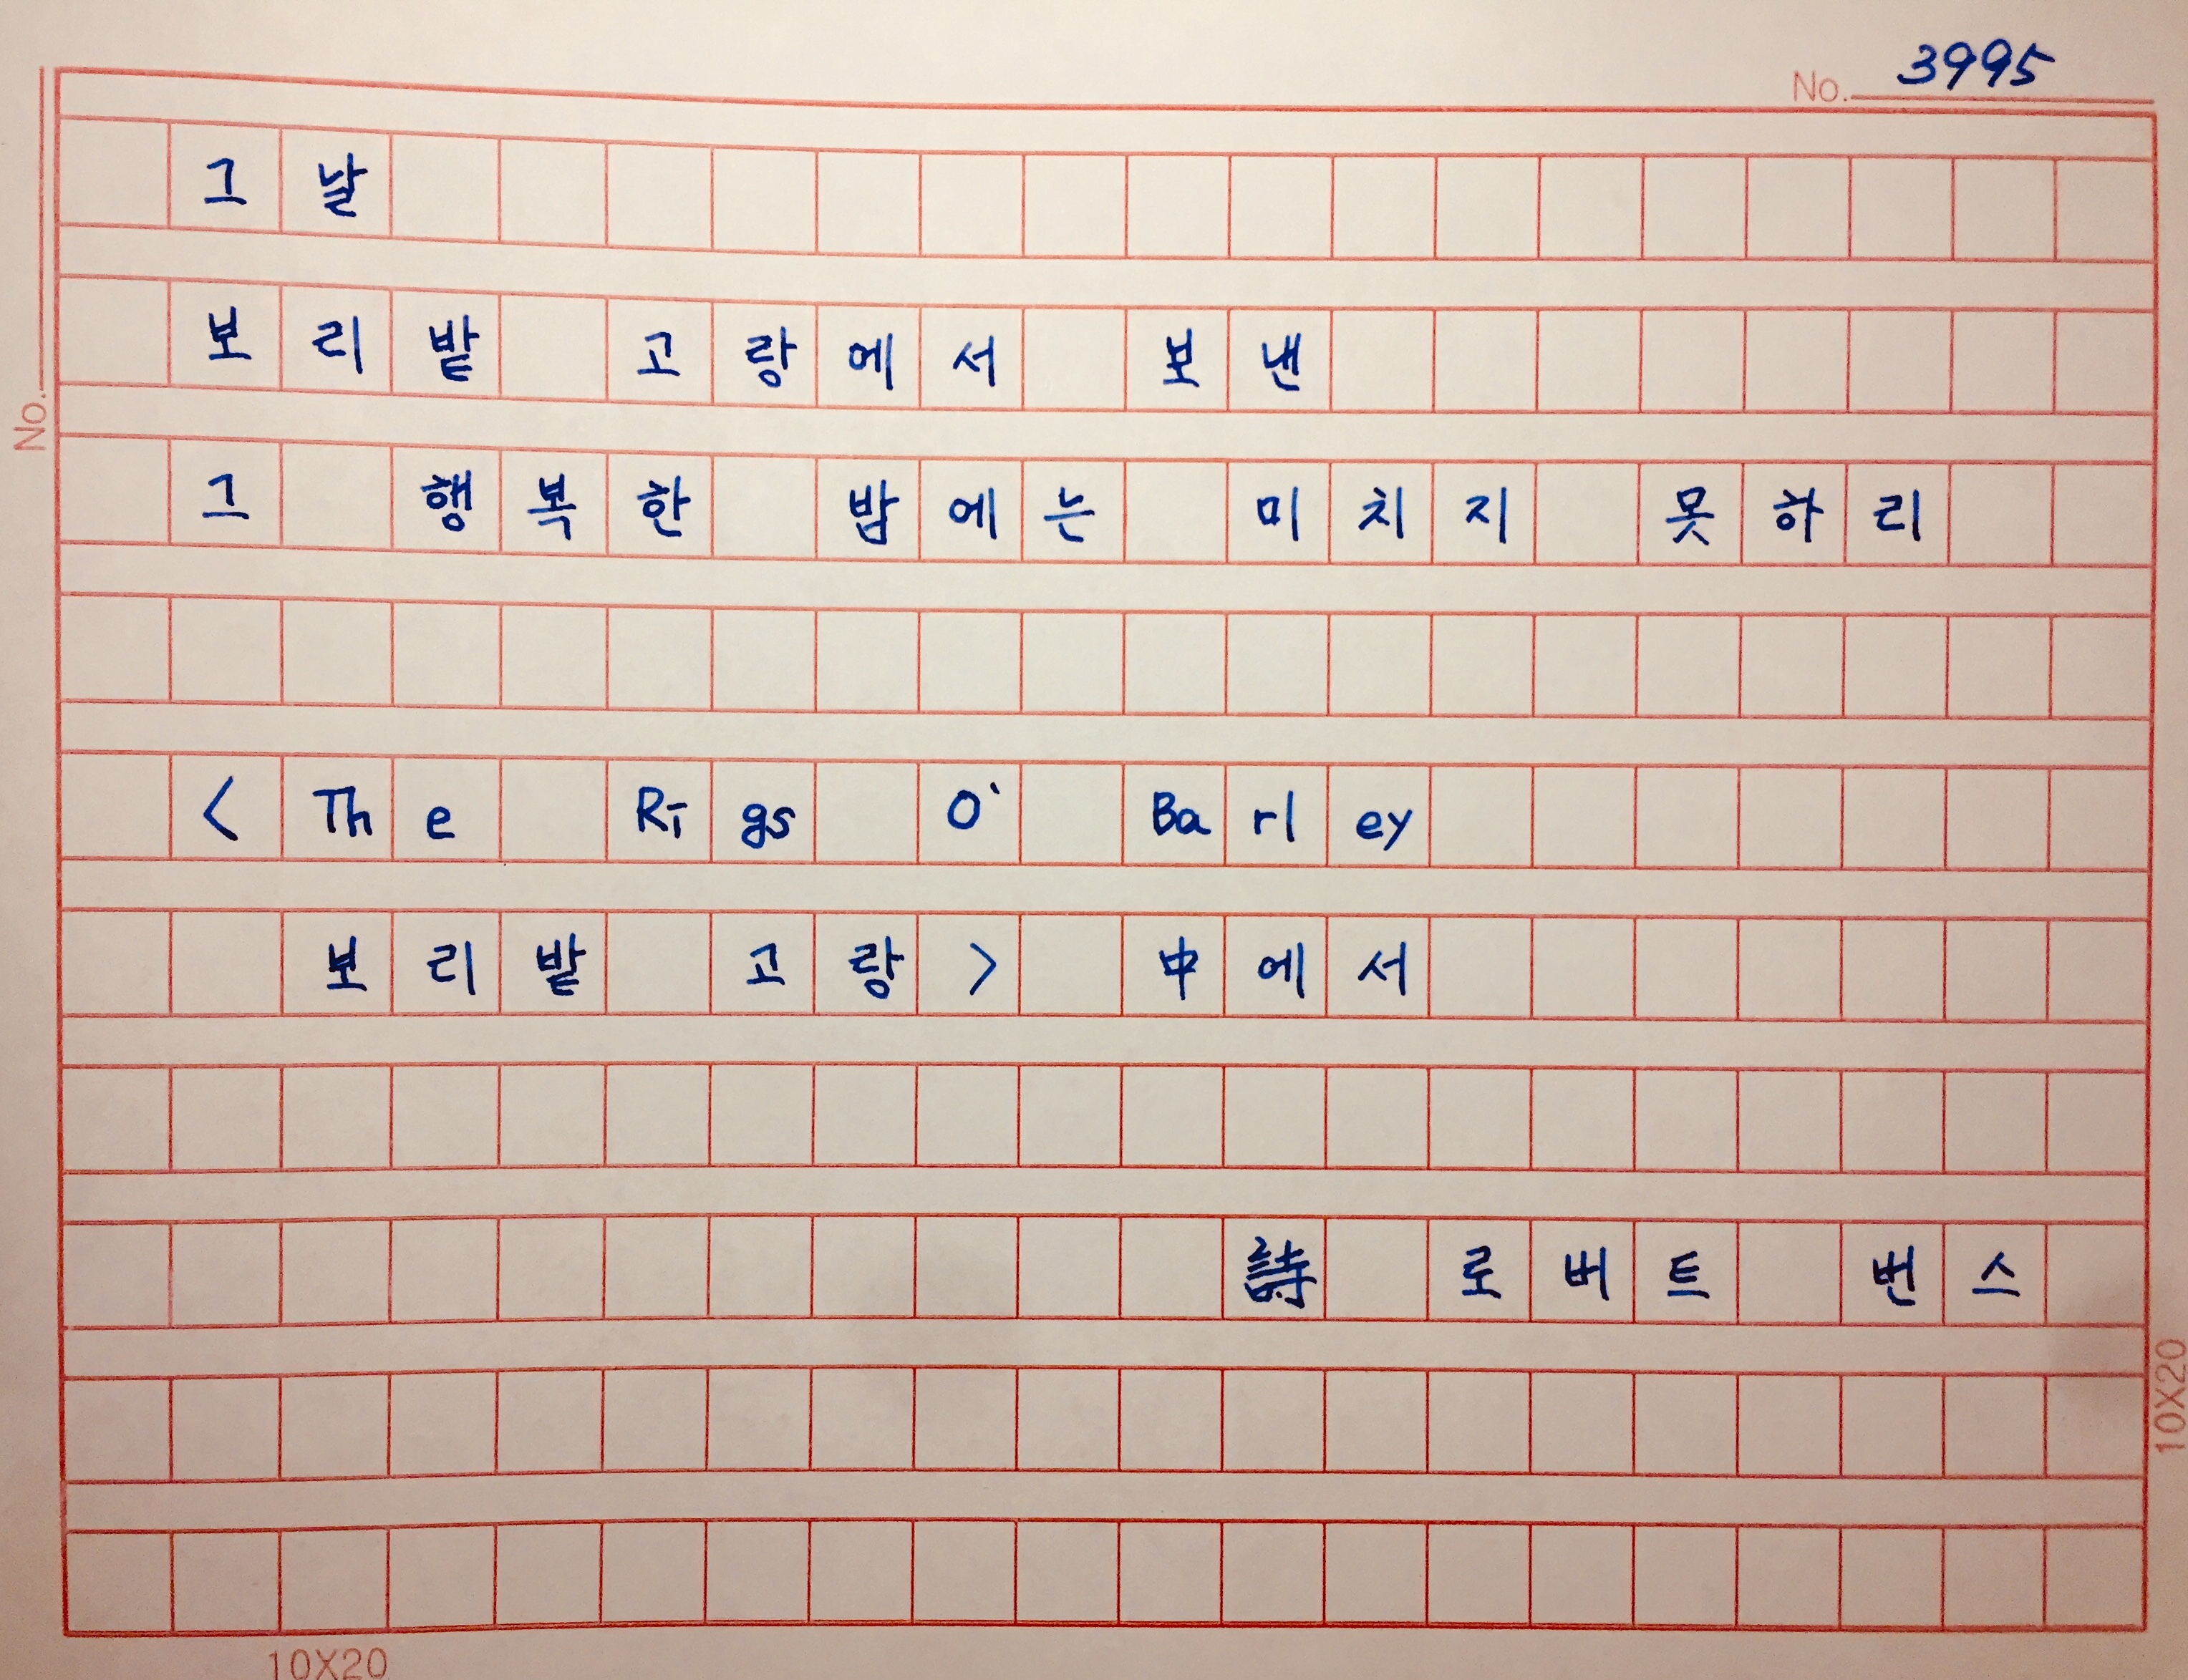 No. 3995
No.
그날
보리밭 고랑에서 보낸
그 행복한 밤에는 미치지 못하리
<The Rigs O` Barley
보리밭 고랑> 中에서
詩 로버트 번스
10X20
10X20